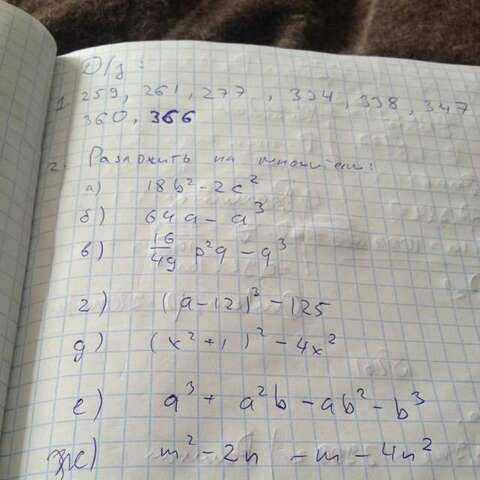 Д/з:
1. 259, 261, 277, 334, 338, 347
360, 366
2. Разложить на множители:
а) 18b² - 2c²
б) 64a - a³
в) 16/49 p²q - q³
г) (a - 12)³ - 125
д) (x² + 1)² - 4x²
е) a³ + a²b - ab² - b³
ж) m² - 2n - m - 4n²